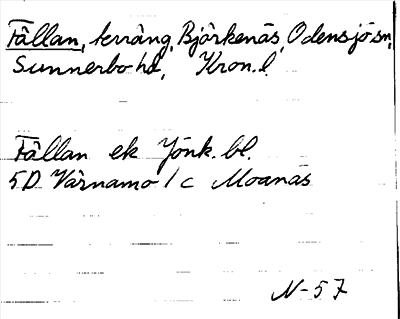 Fållan, terräng, Björkenäs, Odensjö sn,
Sunnerbo hd, Kron.l.
Fållan ek Jönk. bl.
5D Värnamo 1c Moanäs
N-57